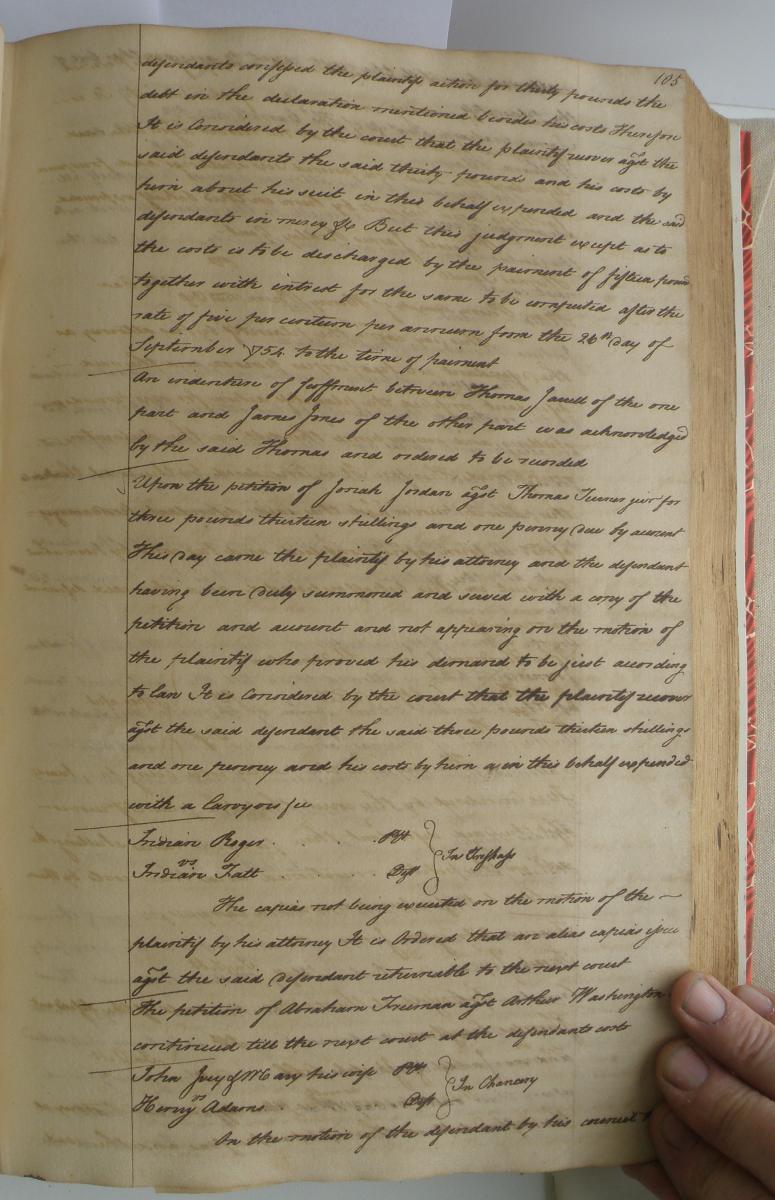 105
defendants confessed the plaintifs action for thirty pounds the
debt in the declaration mentioned besides his costs Therefore
It is Considered by the court that the plaintif recover agst the
said defendants the said thirty pounds and his costs by
him about his suit in this behalf expended and the said
defendants in mercy &c But this judgment except as to
the costs is to be discharged by the paiment of fifteen pounds
together with intrest for the same to be computed after the
rate of five per centum per annum from the 26th day of
September 1754 to the time of paiment
An indenture of feoffment between Thomas Jarrell of the one
part and James Jones of the other part was acknowledged
by the said Thomas and ordered to be recorded
Upon the petition of Josiah Jordan agst Thomas Turner for
three pounds thirteen shillings and one penny due by account
This day came the plaintif by his attorney and the defendant
having been duly summoned and served with a copy of the
petition and account and not appearing on the motion of
the plaintif who proved his demand to be just according
to Law It is Considered by the court that the plaintif recover
agst the said defendant the said three pounds thirteen shillings
and one penney and his costs by him in this behalf expended
with a Lawyers fee
Indian Roger Plt
vs In Trespass
Indian Tatt Deft
The capias not being executed on the motion of the
plaintif by his attorney It is Ordered that an alias capias issue
agst the said defendant returnable to the next court
The petition of Abraham Freeman agst Arthur Washington
continued till the next court at the defendants costs
John Ivey & Mary his wife Plts
vs In Chancery
Henry Adams Deft
On the motion of the defendant by his councel